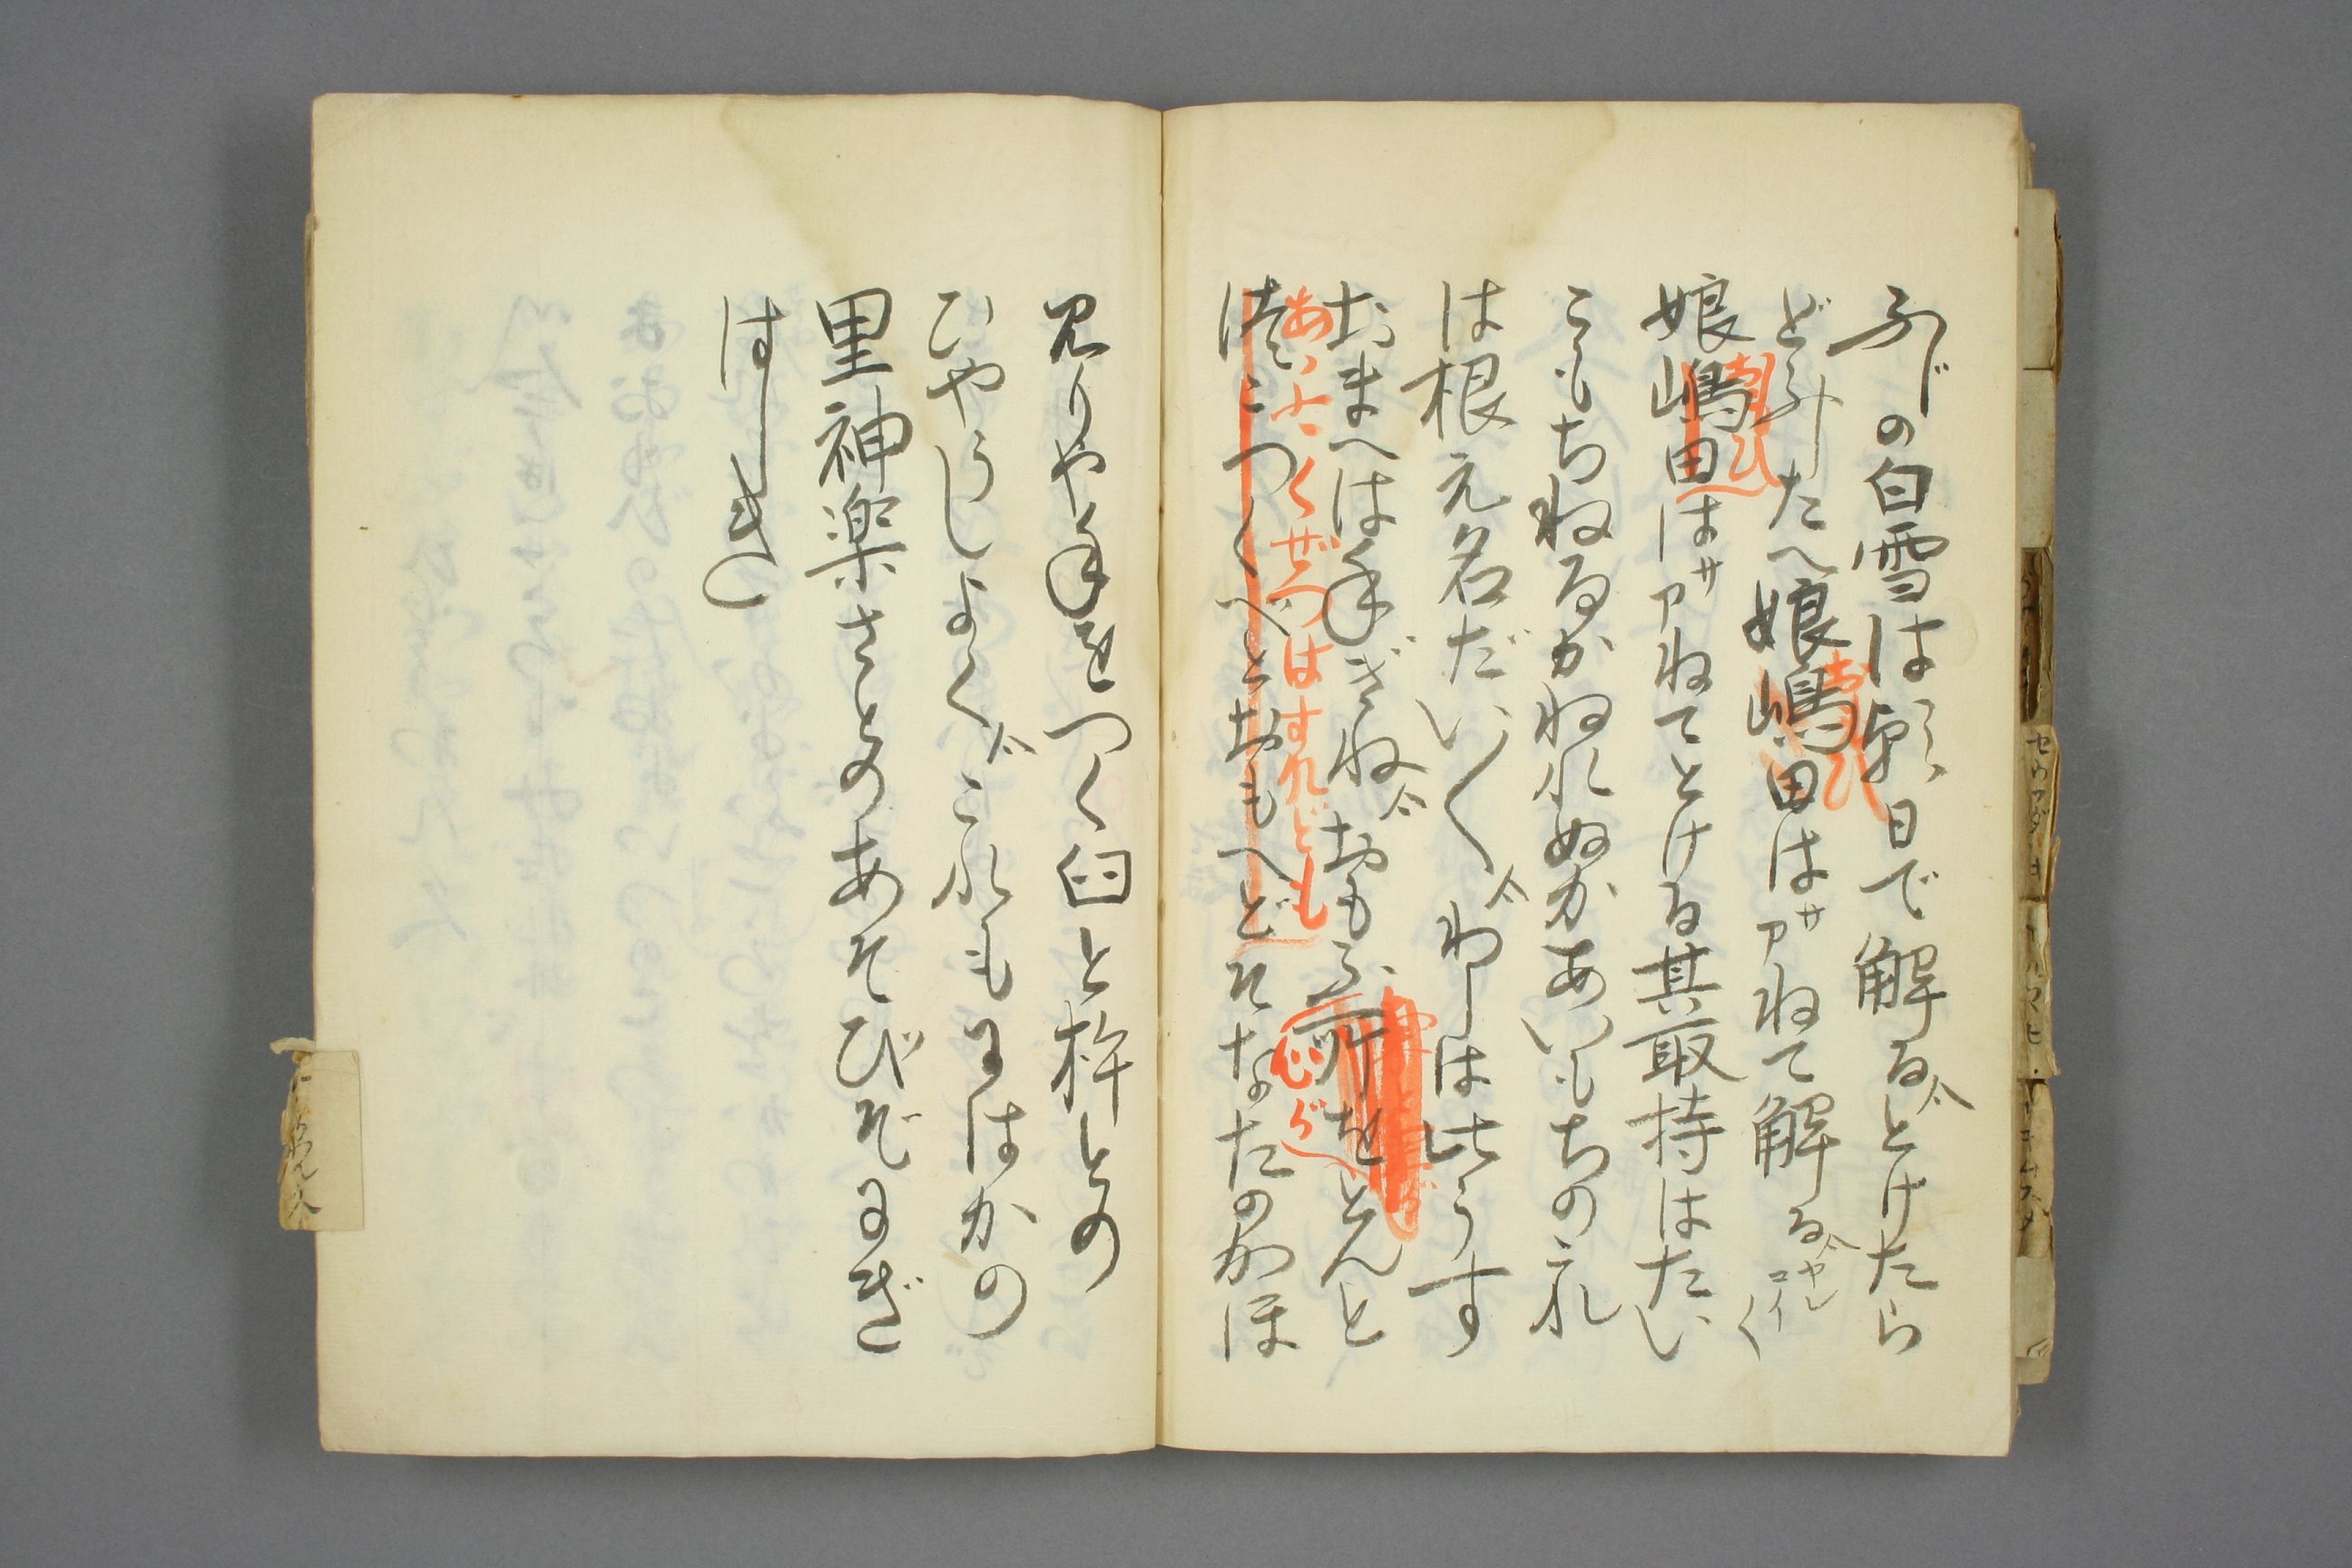 ふじの白雪は朝日で解る〽とけたら
どふした〽娘嶋田はサアねて解る〽ヤレコイ〱
おび
娘嶋田はサアねてとける其取持はたい
おび
こもちねるかねれぬかあいもちのこれ
は根元名だい〱〽わしは此うす
おまへはきぎね〽おもふ所をとんと
心ぞ
あいよくぜつはすれども
つくべとおもへどそなたのかほ
見りやきをつく臼と杵との
ひやうしよく〽これもにはかの
里神楽さとのあそびぞにぎ
はしき